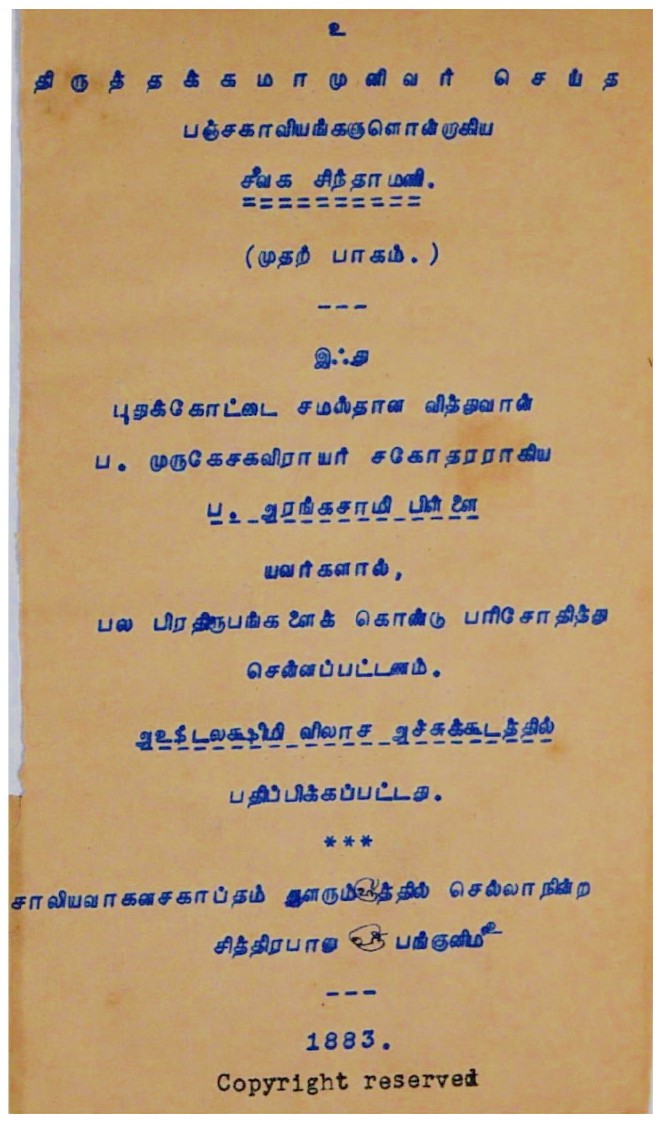 உ
திருத்தக்கமாமுனிவர் செய்த
பஞ்சகாவியங்களுளொன்றாகிய
சீவக சிந்தாமணி.
==========
(முதற் பாகம்.)
---
இஃது
புதுக்கோட்டை சமஸ்தான வித்துவான்
ப. முருகேசகவிராயர் சகோதரராகிய
ப. அரங்கசாமி பிள்ளை
யவர்களால்,
பல பிரதிரூபங்களைக் கொண்டு பரிசோதித்து
சென்னப்பட்டணம்.
விலாச அச்சுக்கூடத்தில்
பதிப்பிக்கப்பட்டது.
***
சாலியவாகனசகாப்தம் செல்லாநின்ற
சித்திரபானு பங்குனி
---
1883.
Copyright reserved